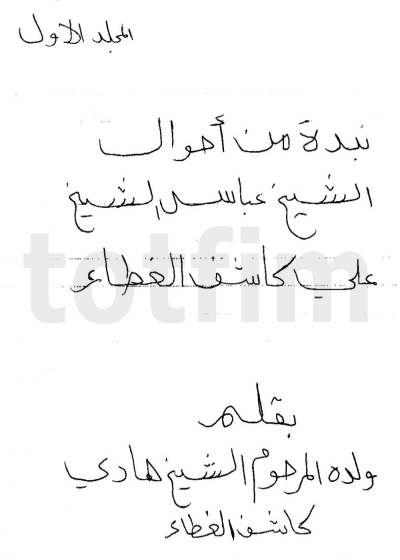 المجلد الاول
نبدة من أحوال
الشيخ عباس بن الشيخ
علي كاشف الغطاء
totfim
بقلم
ولده المرحوم الشيخ هادي
كاشف الغطاء